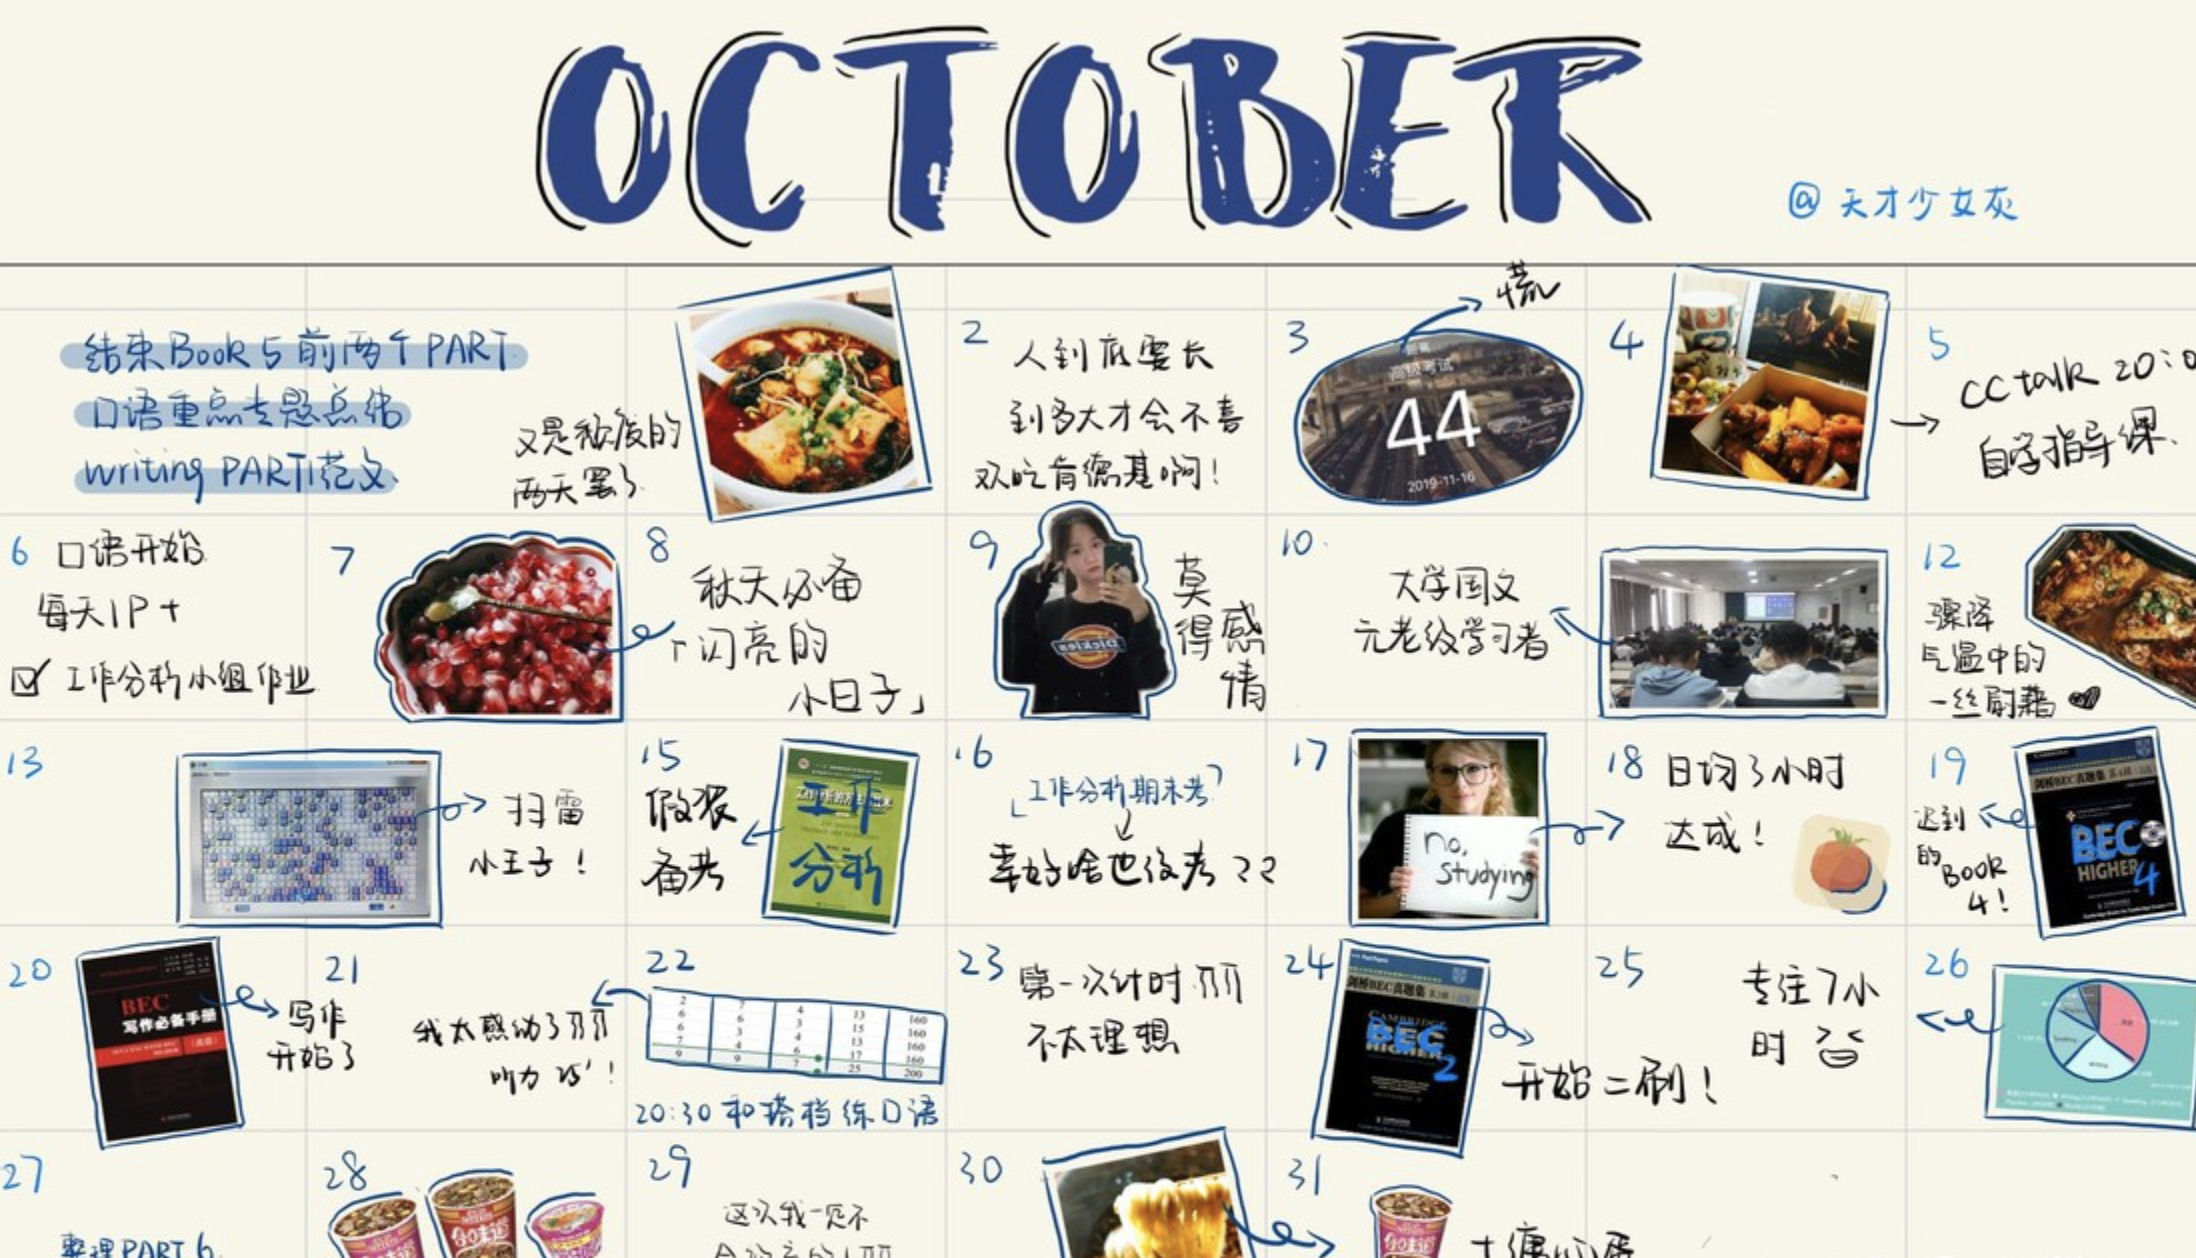 OCTOBER
@天才少女灰
结束Book 5 前两个PART
口语重点专题总结
writing PART1范文
又是颓废的
两天罢了
2
人到底要长
到多大才会不喜
欢吃肯德基啊!
3
慌
高级考试
44
2019-11-16
4
5
CCtalk 20:0
自学指导课.
6 口语开始
每天1P+
工作分析小组作业
7
8
秋天必备
「闪亮的
小日子」
9
莫
得感
情
10.
大学国文
元老级学习者
12
骤降
气温中的
一丝慰藉
13
扫雷
小王子!
15
假装
备考
工作
分析
16
「工作分析期末考?
幸好啥也没考??
17
no,
studying
18 日均3小时
达成!
19
迟到
的
BOOK
4!
剑桥BEC真题集 第4辑
BEC
HIGHER 4
20
BEC
写作必备手册
(高级)
21
写作
开始了
22
我太感动了
听力 25'!
2 7 4 13 160
6 6 3 15 160
6 3 3 16 160
7 4 6 17 160
9 9 7 25 200
20:30 和搭档练口语
23 第一次计时
不太理想
24
剑桥BEC真题集 第2辑
CAMBRIDGE
BEC
HIGHER 2
开始二刷!
25
专注7小
时
26
27
整理PART 6
28
合味道
29
这次我一定不
30
31
合味道